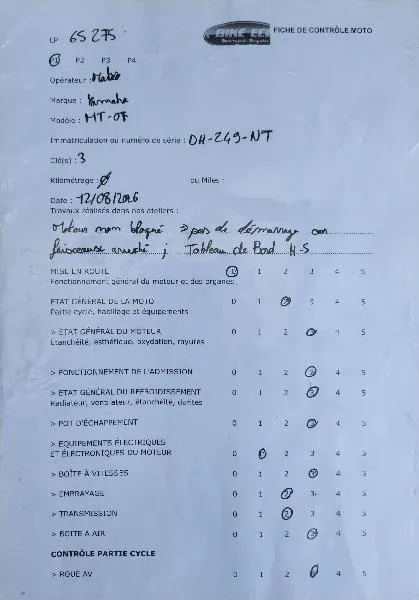 LP 65 275
BIKE ECO FICHE DE CONTRÔLE MOTO
P1 P2 P3 P4
Opérateur :
Marque : Yamaha
Modèle : MT-07
Immatriculation ou numéro de série : DH-249-NT
Clé(s) : 3
Kilométrage : Ø ou Miles :
Date : 12/08/2026
Travaux réalisés dans nos ateliers :
Moteur non bloqué => pas de démarrage car
faisceaux arraché ; Tableau de Bord H.S
MISE EN ROUTE 0 1 2 3 4 5
Fonctionnement général du moteur et des organes
ETAT GÉNÉRAL DE LA MOTO 0 1 2 3 4 5
Partie cycle, habillage et équipements
> ETAT GÉNÉRAL DU MOTEUR 0 1 2 3 4 5
Etanchéité, esthétique, oxydation, rayures
> FONCTIONNEMENT DE L'ADMISSION 0 1 2 3 4 5
> ETAT GÉNÉRAL DU REFROIDISSEMENT 0 1 2 3 4 5
Radiateur, ventilateur, étanchéité, durites
> POT D'ÉCHAPPEMENT 0 1 2 3 4 5
> EQUIPEMENTS ÉLECTRIQUES
ET ÉLECTRONIQUES DU MOTEUR 0 1 2 3 4 5
> BOÎTE À VITESSES 0 1 2 3 4 5
> EMBRAYAGE 0 1 2 3 4 5
> TRANSMISSION 0 1 2 3 4 5
> BOITE A AIR 0 1 2 3 4 5
CONTRÔLE PARTIE CYCLE
> ROUE AV 0 1 2 3 4 5